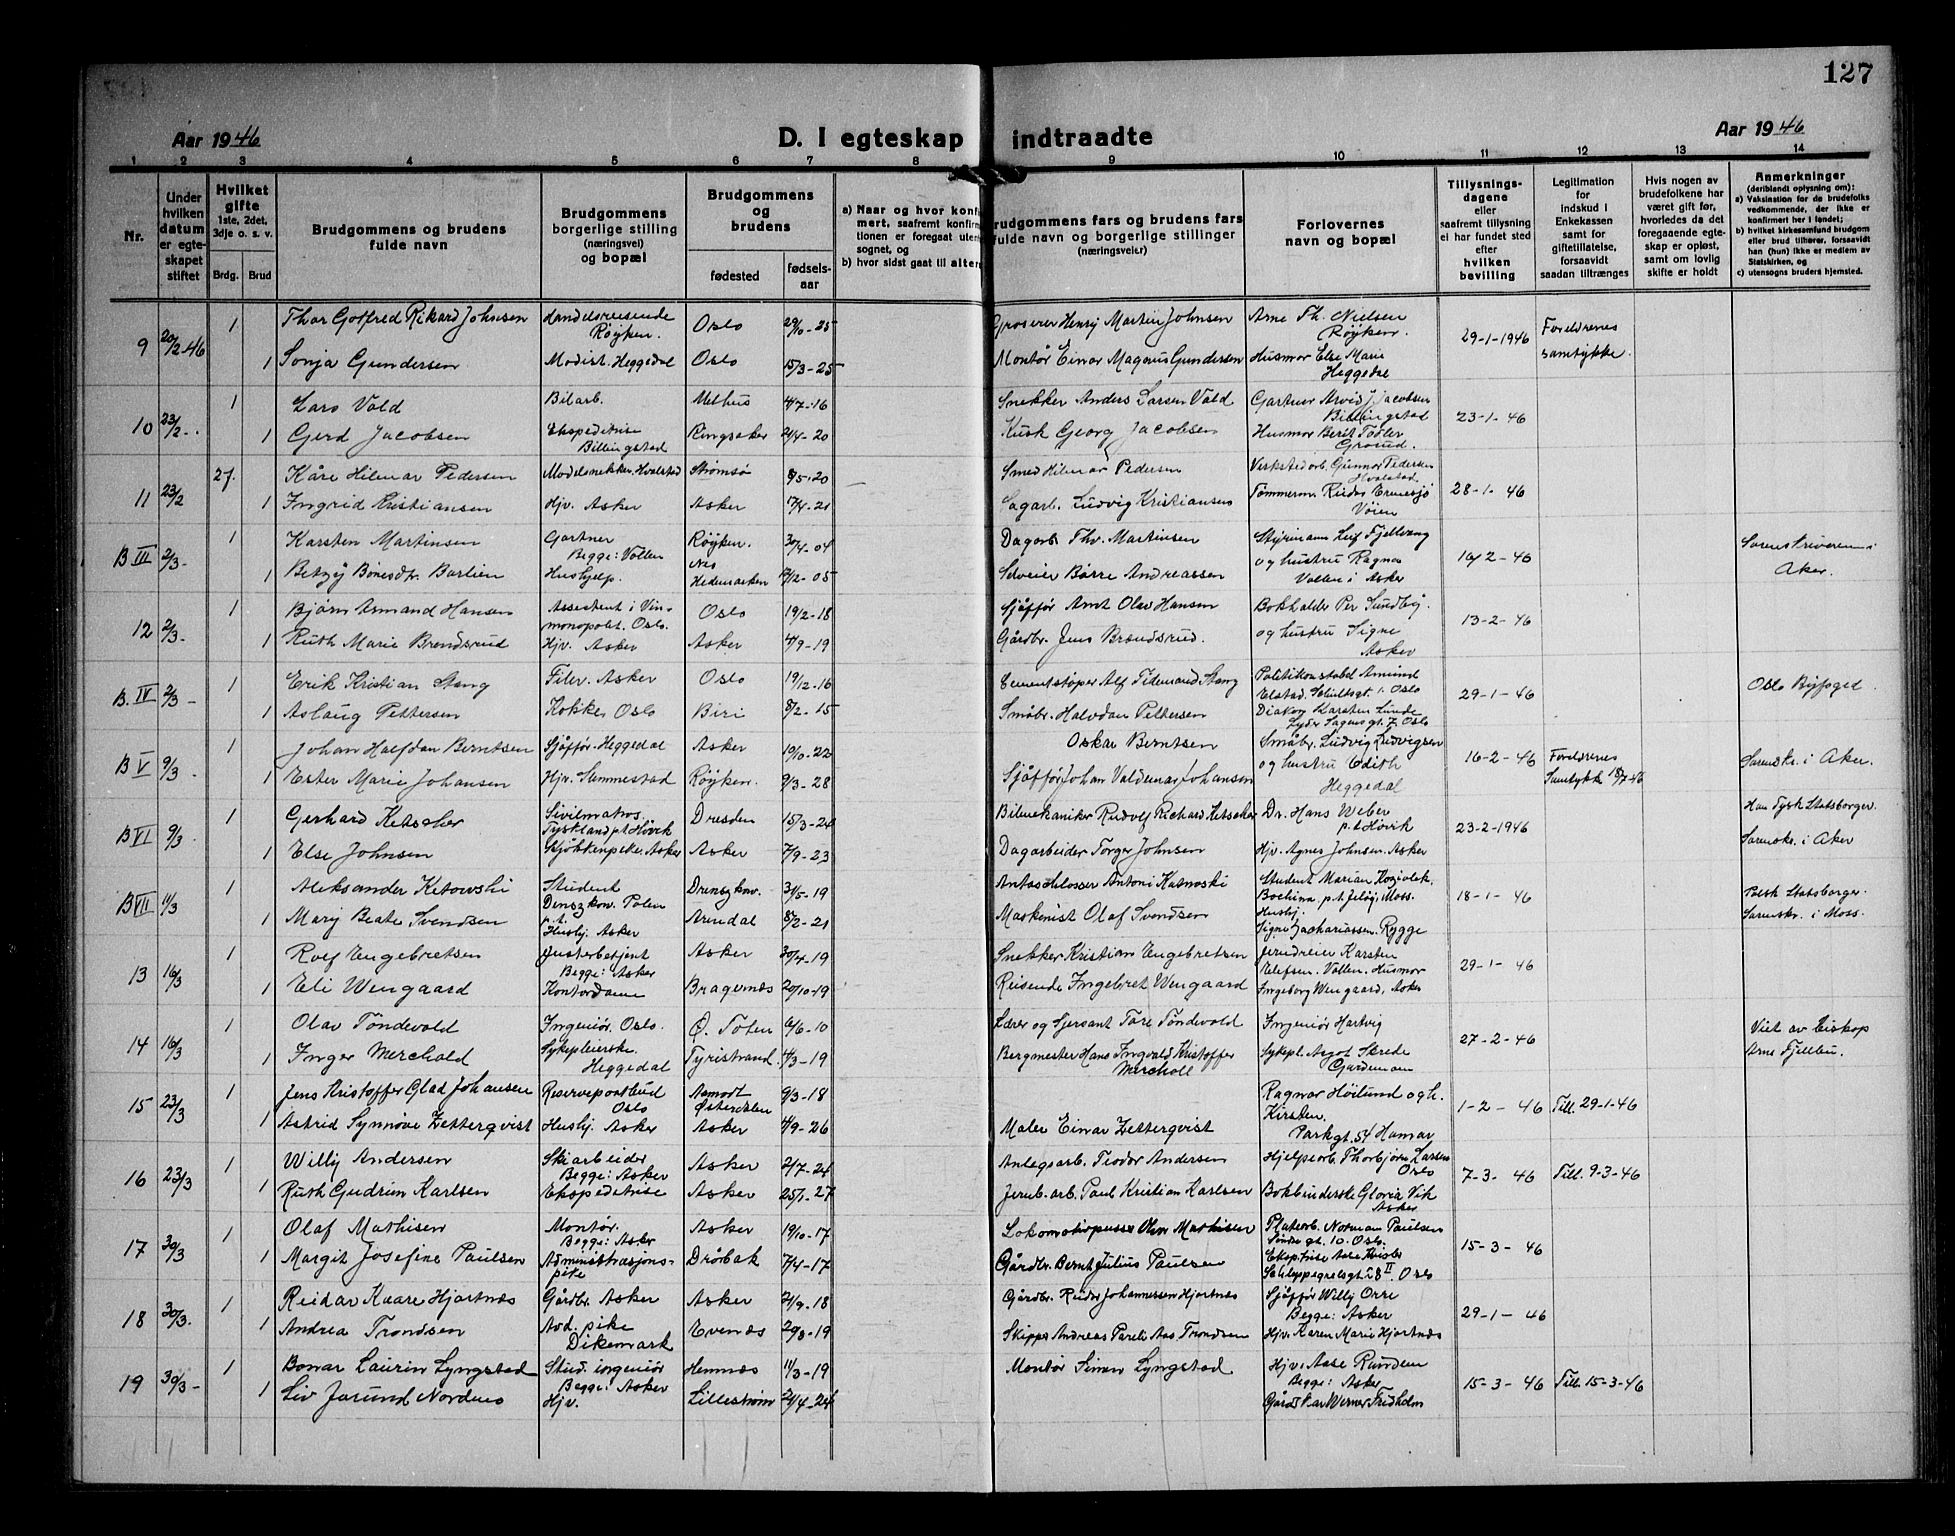 127
Aar 1946
D. I egteskap indtraadte
Aar 1946
1 2 3 4 5 6 7 8 9 10 11 12 13 14
Nr.
Under hvilken datum er egteskapet stiftet
Hvilket gifte 1ste, 2det, 3dje o. s. v.
Brdg. Brud
Brudgommens og brudens fulde navn
Brudgommens borgerlige stilling (næringsvei) og bopæl
Brudgommens og brudens
fødested
fødselsaar
a) Naar og hvor konfi
mert, saafremt konfirma
tionen er foregaat uten
sognet, og
b) hvor sidst gaat til alter
rudgommens fars og brudens fars
fulde navn og borgerlige stillinger
(næringsveier)
Forlovernes navn og bopæl
Tillysningsdagene eller saafremt tillysning ei har fundet sted efter hvilken bevilling
Legitimation for indskud i Enkekassen samt for giftetillatelse, forsaavidt saadan tiltrænges
Hvis nogen av brudefolkene har været gift før, hvorledes da det foregaaende egteskap er opløst, samt om lovlig skifte er holdt
Anmerkninger
(deriblandt oplysning om):
a) Vaksination for de brudefolks vedkommende, der ikke er konfirmert her i landet;
b) hvilket kirkesamfund brudgom eller brud tilhører, forsaavidt han (hun) ikke er medlem av Statskirken, og
c) utensogns bruders hjemsted.
9 20/2-46 1 Thor Gotfred Rikard Johnsen Handelsreisende Røyken. Oslo 29/10-25 Groserer Henry Martin Johnsen Arne Th. Nielsen Røyken. 29-1-1946 Foreldrenes samtykke.
1 Sonja Gundersen Modist. Heggedal Oslo 15/3-25 Montør Einar Magnus Gundersen Husmor Else Marie Heggedal
10 23/2-. 1 Lars Vold Bilarb. Melhus 4/7-16 Snekker Anders Larsen Vald Gartner Arvid J Jacobsen Billingstad 23-1-46
1 Gerd Jacobsen Ekspeditrise Billingstad Ringsaker 24/4-20 Kusk Georg Jacobsen Husmor Berit Tofler Grorud.
11 23/2 27. Kåre Hilmar Pedersen Modelsnekker. Hvalstad Strømsø 8/5-20 Smed Hilmar Pedersen Verkstedarb. Gunnar Pedersen Hvalstad. 28-1-46
1 Ingrid Kristiansen Hjv. Asker Asker 17/4-21 Sagarb. Ludvig Kristiansen Tømmerm. Reidar Vøien
B III 2/3- 1 Karsten Martinsen Gartner Begge: Vollen Røyken. 30/4-04 Dagarb Thv. Martinsen Styrmann Leif Fjellvang 16/2-46 Sorenskriveren i
1 Betzy Bønesdtr. Barlien Hushjelp. Nes Hedemarken 12/2-05 Selveier Børre Andreassen og hustru Ragna Vollen i Asker Aker.
12 2/3- 1 Bjørn Armand Hansen Assistent i Vinmonopolet. Oslo. Oslo 19/2-18 Sjåfför Arnt Olav Hansen Bokholder Per Sundby. 13-2-46
1 Ruth Marie Brendsrud Hjv. Asker Asker 4/9-19 Gårdbr. Jens Brendsrud. og hustru Signe Asker
B. IV 2/3- 1 Erik Kristian Stang Filer. Asker Oslo 19/12-16 Cementstøper Alf Tidemand Stang Politikonstabel Amund Elstad. Schultsgt. 1. Oslo 29-1-46 Oslo Byfogd.
1 Aslaug Pettersen Kokke. Oslo Biri 8/2-15 Småbr. Halvdan Pettersen Diakon Karsten Lunde Lyder Sagensgt. 7. Oslo
B V 9/3. 1 Johan Halfdan Berntsen Sjåfför. Heggedal Asker 19/10-22 Oskar Berntsen Småbr. Ludvig Ludvigsen 16-2-46 Foreldrenes Sorenskr. i Aker.
1 Ester Marie Johansen Hjv. Slemmestad Røyken. 9/3-28 Sjåfför Johan Valdemar Johansen og hustru Edith Heggedal Samtykke 18/7-46
B VI 9/3. 1 Gerhard Ketscher Sivilmatros. Tyskland p.t Høvik Dresden 15/3-24 Bilmekaniker Rudolf Richard Ketscher Dr. Hans Weber p.t Høvik 23-2-1946 Han Tysk Statsborger.
1 Else Johnsen Kjøkkenpike. Asker Asker 7/9-23 Dagarbeider Torger Johnsen Hjv. Agnes Johnsen. Asker Sorenskr. i Aker
B VII 11/3 1 Aleksander Kotowski Student Polen p.t. 31/5-19 Antoni Student Marian Bochina. p.t. Jeløy, Moss. 18-1-46 Polsk Statsborger.
1 Mary Beate Svendsen Hushj. Asker Arendal 8/2-21 Maskinist Olaf Svendsen Hushj. Signe Zachariassen. Rygge Sorenskr. i Moss.
13 16/3 1 Rolf Engebretsen Justerbetjent Begge: Asker Asker 30/4-19 Snekker Kristian Engebretsen Jerndreier Karsten Elefsen. Vollen. 29-1-46
1 Eli Wengaard Kontordame Bragernæs 20/10-19 Reisende Ingebret Wengaard Husmor Ingeborg Wengaard, Asker
14 16/3 1 Olav Töndevold Ingeniör. Oslo. Ø. Toten 6/6-10 Lærer og Sersant Tore Töndevold Ingeniör Hartvig 27-2-46 Viet av biskop
1 Inger Merchold Sykepleierske. Heggedal Tyristrand 4/3-19 Bergmester Hans Ingvald Kristoffer Mercholl Sykepl. Aagot Skrede Gardemoen Arne Fjellbu.
15 23/3 1 Jens Kristoffer Glad Johansen Reservepostbud Oslo Aamodt Østerdalen 9/3-18 Ragnar Höilund og h. Kirsten. 1-2-46 Till. 29-1-46
1 Astrid Synnøve Zetterqvist Hushj. Asker Asker 4/9-26 Maler Einar Zetterqvist Parkgt. 54 Hamar
16 23/3 1 Willy Andersen Skiarbeider Begge: Asker Asker 2/7-24 Anlegsarb. Teodor Andersen Hjelpearb. Thorbjørn Larsen Oslo 7-3-46 Till. 9-3-46
1 Ruth Gudrun Karlsen Ekspeditrise Asker 25/1-27 Jernb. arb. Paul Kristian Karlsen Bokbinderske Gloria Vik Asker
17 30/3 1 Olaf Mathisen Montør. Begge: Asker Asker 19/10-17 Lokomotivpusser Olav Mathisen Platearb. Norman Paulsen gt 10. Oslo. 15-3-46
1 Margit Josefine Paulsen Administrasjonspike Drøbak 7/4-17 Gårdbr. Bernt Julius Paulsen Eksp.trise Aase Schleppegrelsgt 28 II. Oslo
18 30/3. 1 Reidar Kaare Hjortnæs Gårdbr. Asker Asker 21/9-18 Gårdbr. Reidar Johannessen Hjortnæs Sjåfför Willy Orre Begge: Asker 29-1-46
1 Andrea Trondsen Avd. pike Dikemark Evenæs 29/8-19 Skipper Andreas Parelius Aas Trondsen Hjv. Karen Marie Hjortnæs
19 30/3- 1 Bonar Laurin Lyngstad Stud. ingeniør Begge: Asker Hemnæs 11/3-19 Montør Simon Lyngstad Hjv. Aase Randem Begge: Asker 15-3-46 Till. 15-3-46
1 Liv Jorund Nordnes Hjv. Lillestrøm 21/4-24 Werner Fredholm